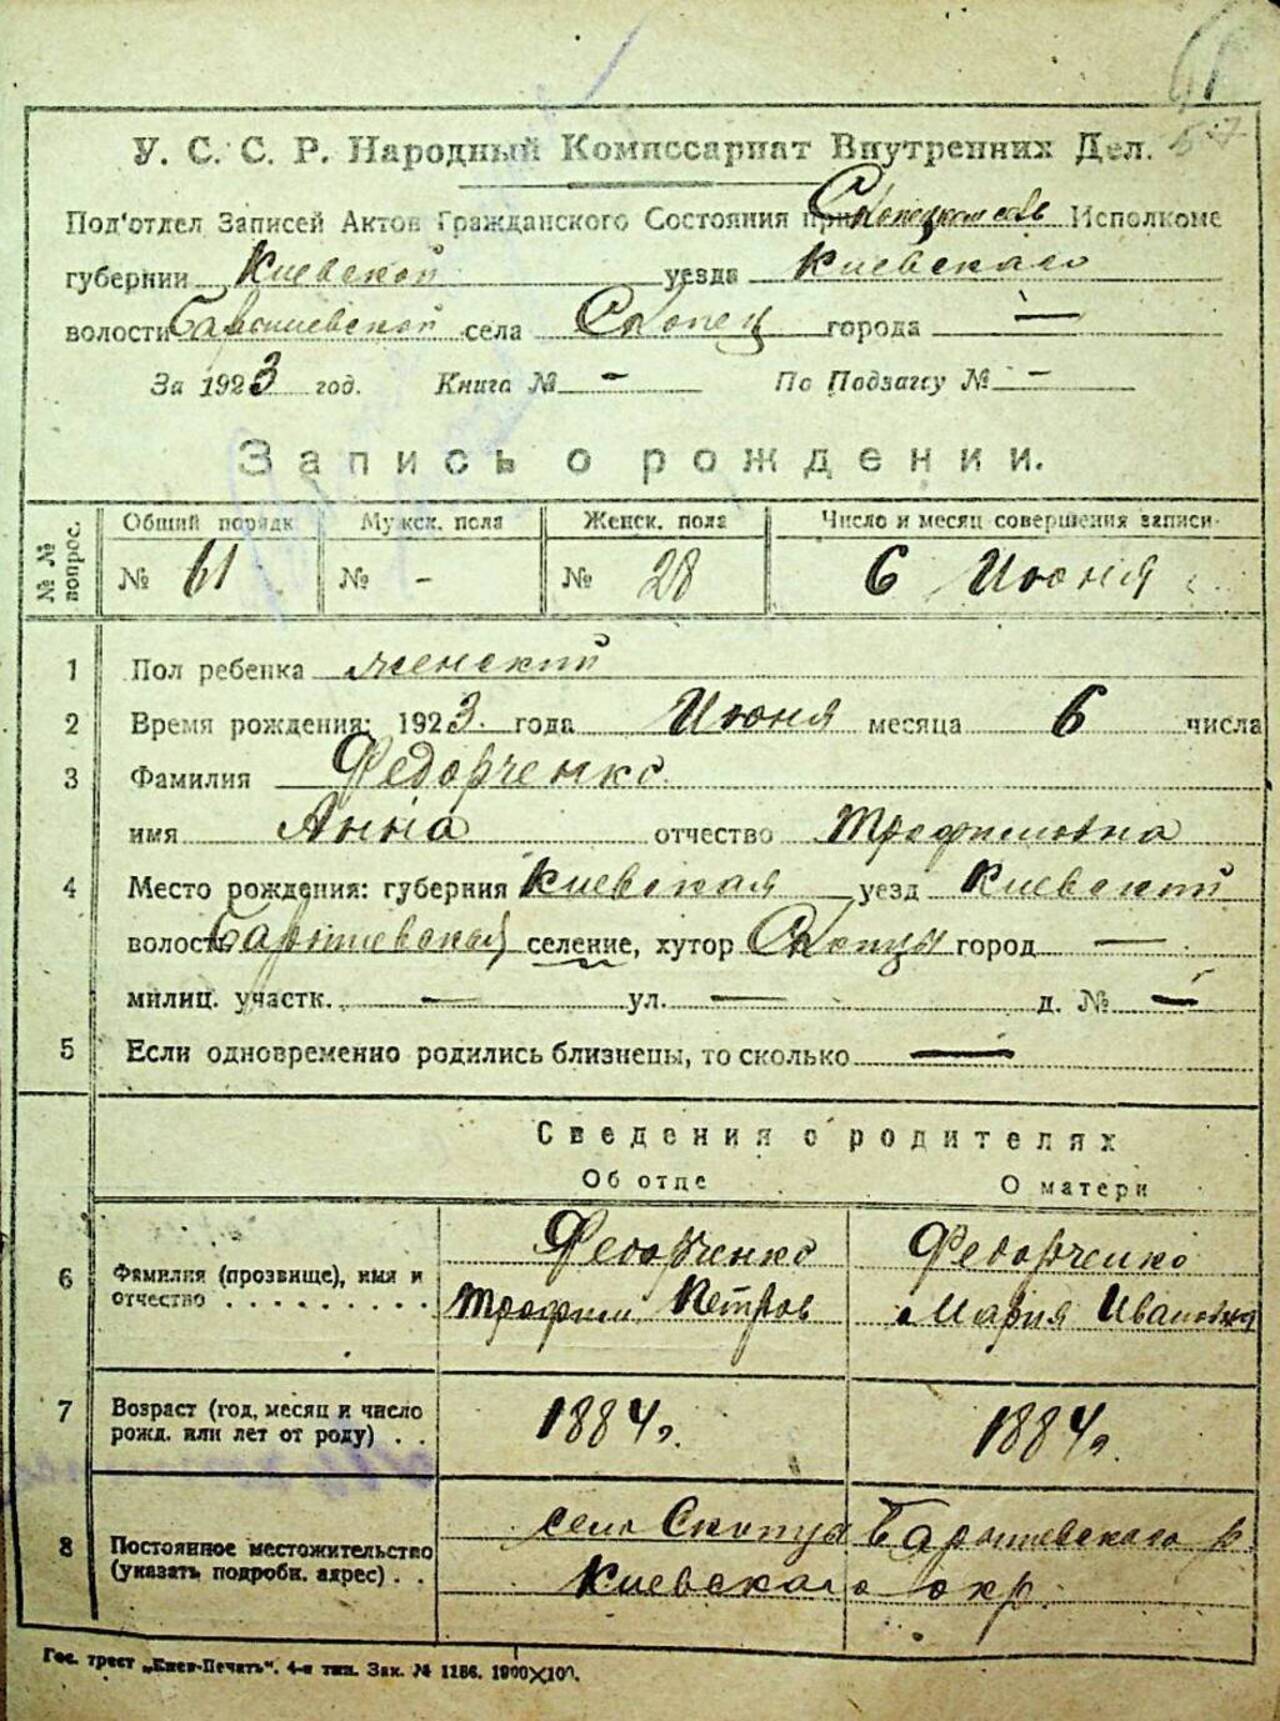 61
57
У. С. С. Р. Народный Комиссариат Внутренних Дел.
Под'отдел Записей Актов Гражданского Состояния при Скопецком Исполкоме
губернии Киевской уезда Киевского
волости Барышевской села Скопец города —
За 1923 год. Книга № - По Подзагсу № -
Запись о рождении.
№ № вопрос.
Общий порядк Мужск. пола Женск. пола Число и месяц совершения записи
№ 61 № - № 28 6 Июня
1 Пол ребенка женский
2 Время рождения: 1923. года Июня месяца 6 числа
3 Фамилия Федорченко
имя Анна отчество Трофимовна
4 Место рождения: губерния Киевская уезд Киевский
волость Барышевская селение, хутор Скопцы город —
милиц. участк. — ул. — д. № —
5 Если одновременно родились близнецы, то сколько —
Сведения о родителях
Об отце О матери
Федорченко Федорченко
6 Фамилия (прозвище), имя и
отчество . . . . . . . . . Трофим Петров Мария Ивановна
7 Возраст (год, месяц и число
рожд. или лет от роду) . . 1884г. 1884г
село Скопцы Барышевского р.
8 Постоянное местожительство
(указать подробн. адрес) . . Киевского окр.
Гос. трест „Киев-Печать". 4-я тип. Зак. № 1186. 1900×100.